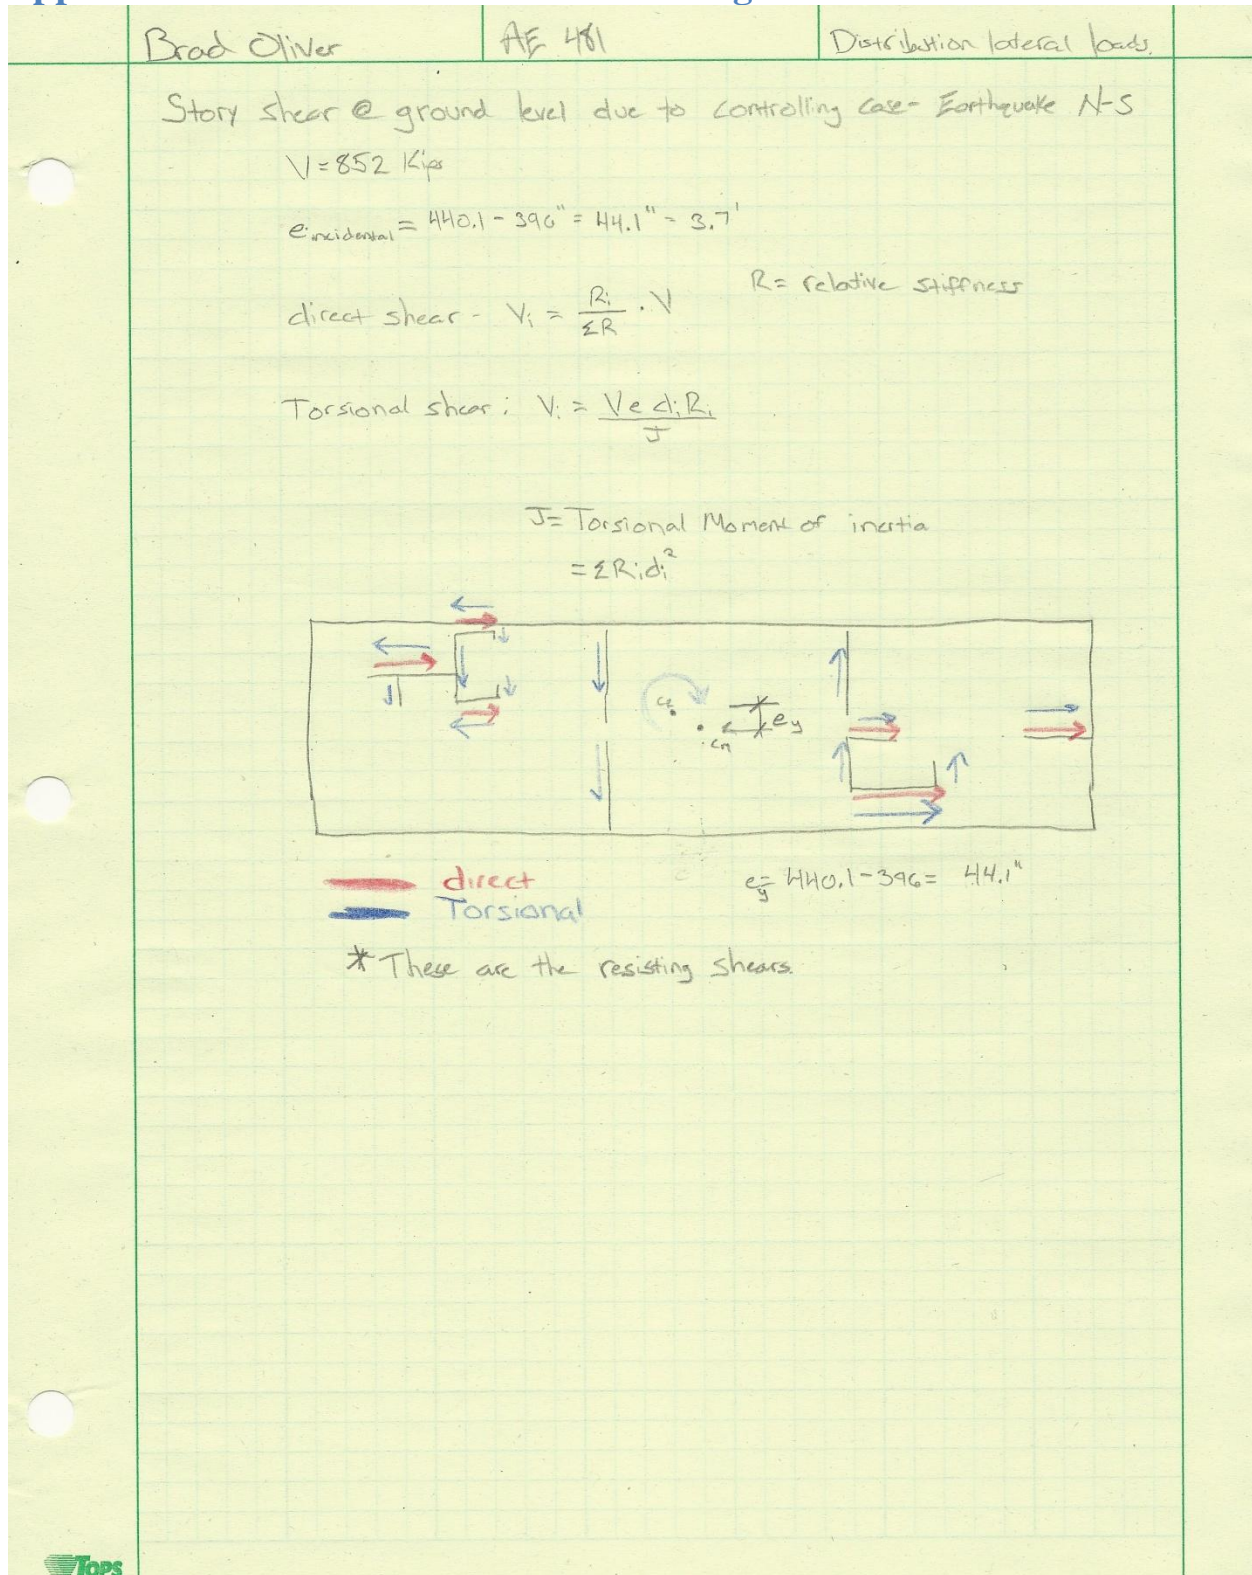 Brad Oliver
AE 481
Distribution lateral loads.
Story shear @ ground level due to controlling case- Earthquake N-S
V=852 Kips
e incidental = 440.1-396" = 44.1" = 3.7'
R= relative stiffness
direct shear - Vi = Ri/ΣR · V
Torsional shear: Vi = Ve di Ri/J
J= Torsional Moment of inertia
= ΣRidi²
ey
cm
direct
ey= 440.1-396= 44.1"
Torsional
* These are the resisting shears.
TOPS